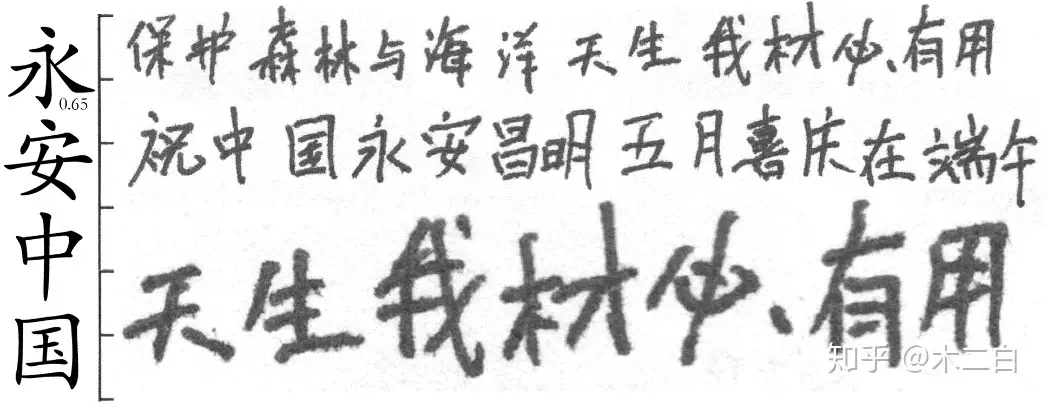 永安中国
0.65
保护森林与海洋 天生我材必有用
祝中国永安昌明 五月喜庆在端午
天生我材必有用
知乎 @木二白